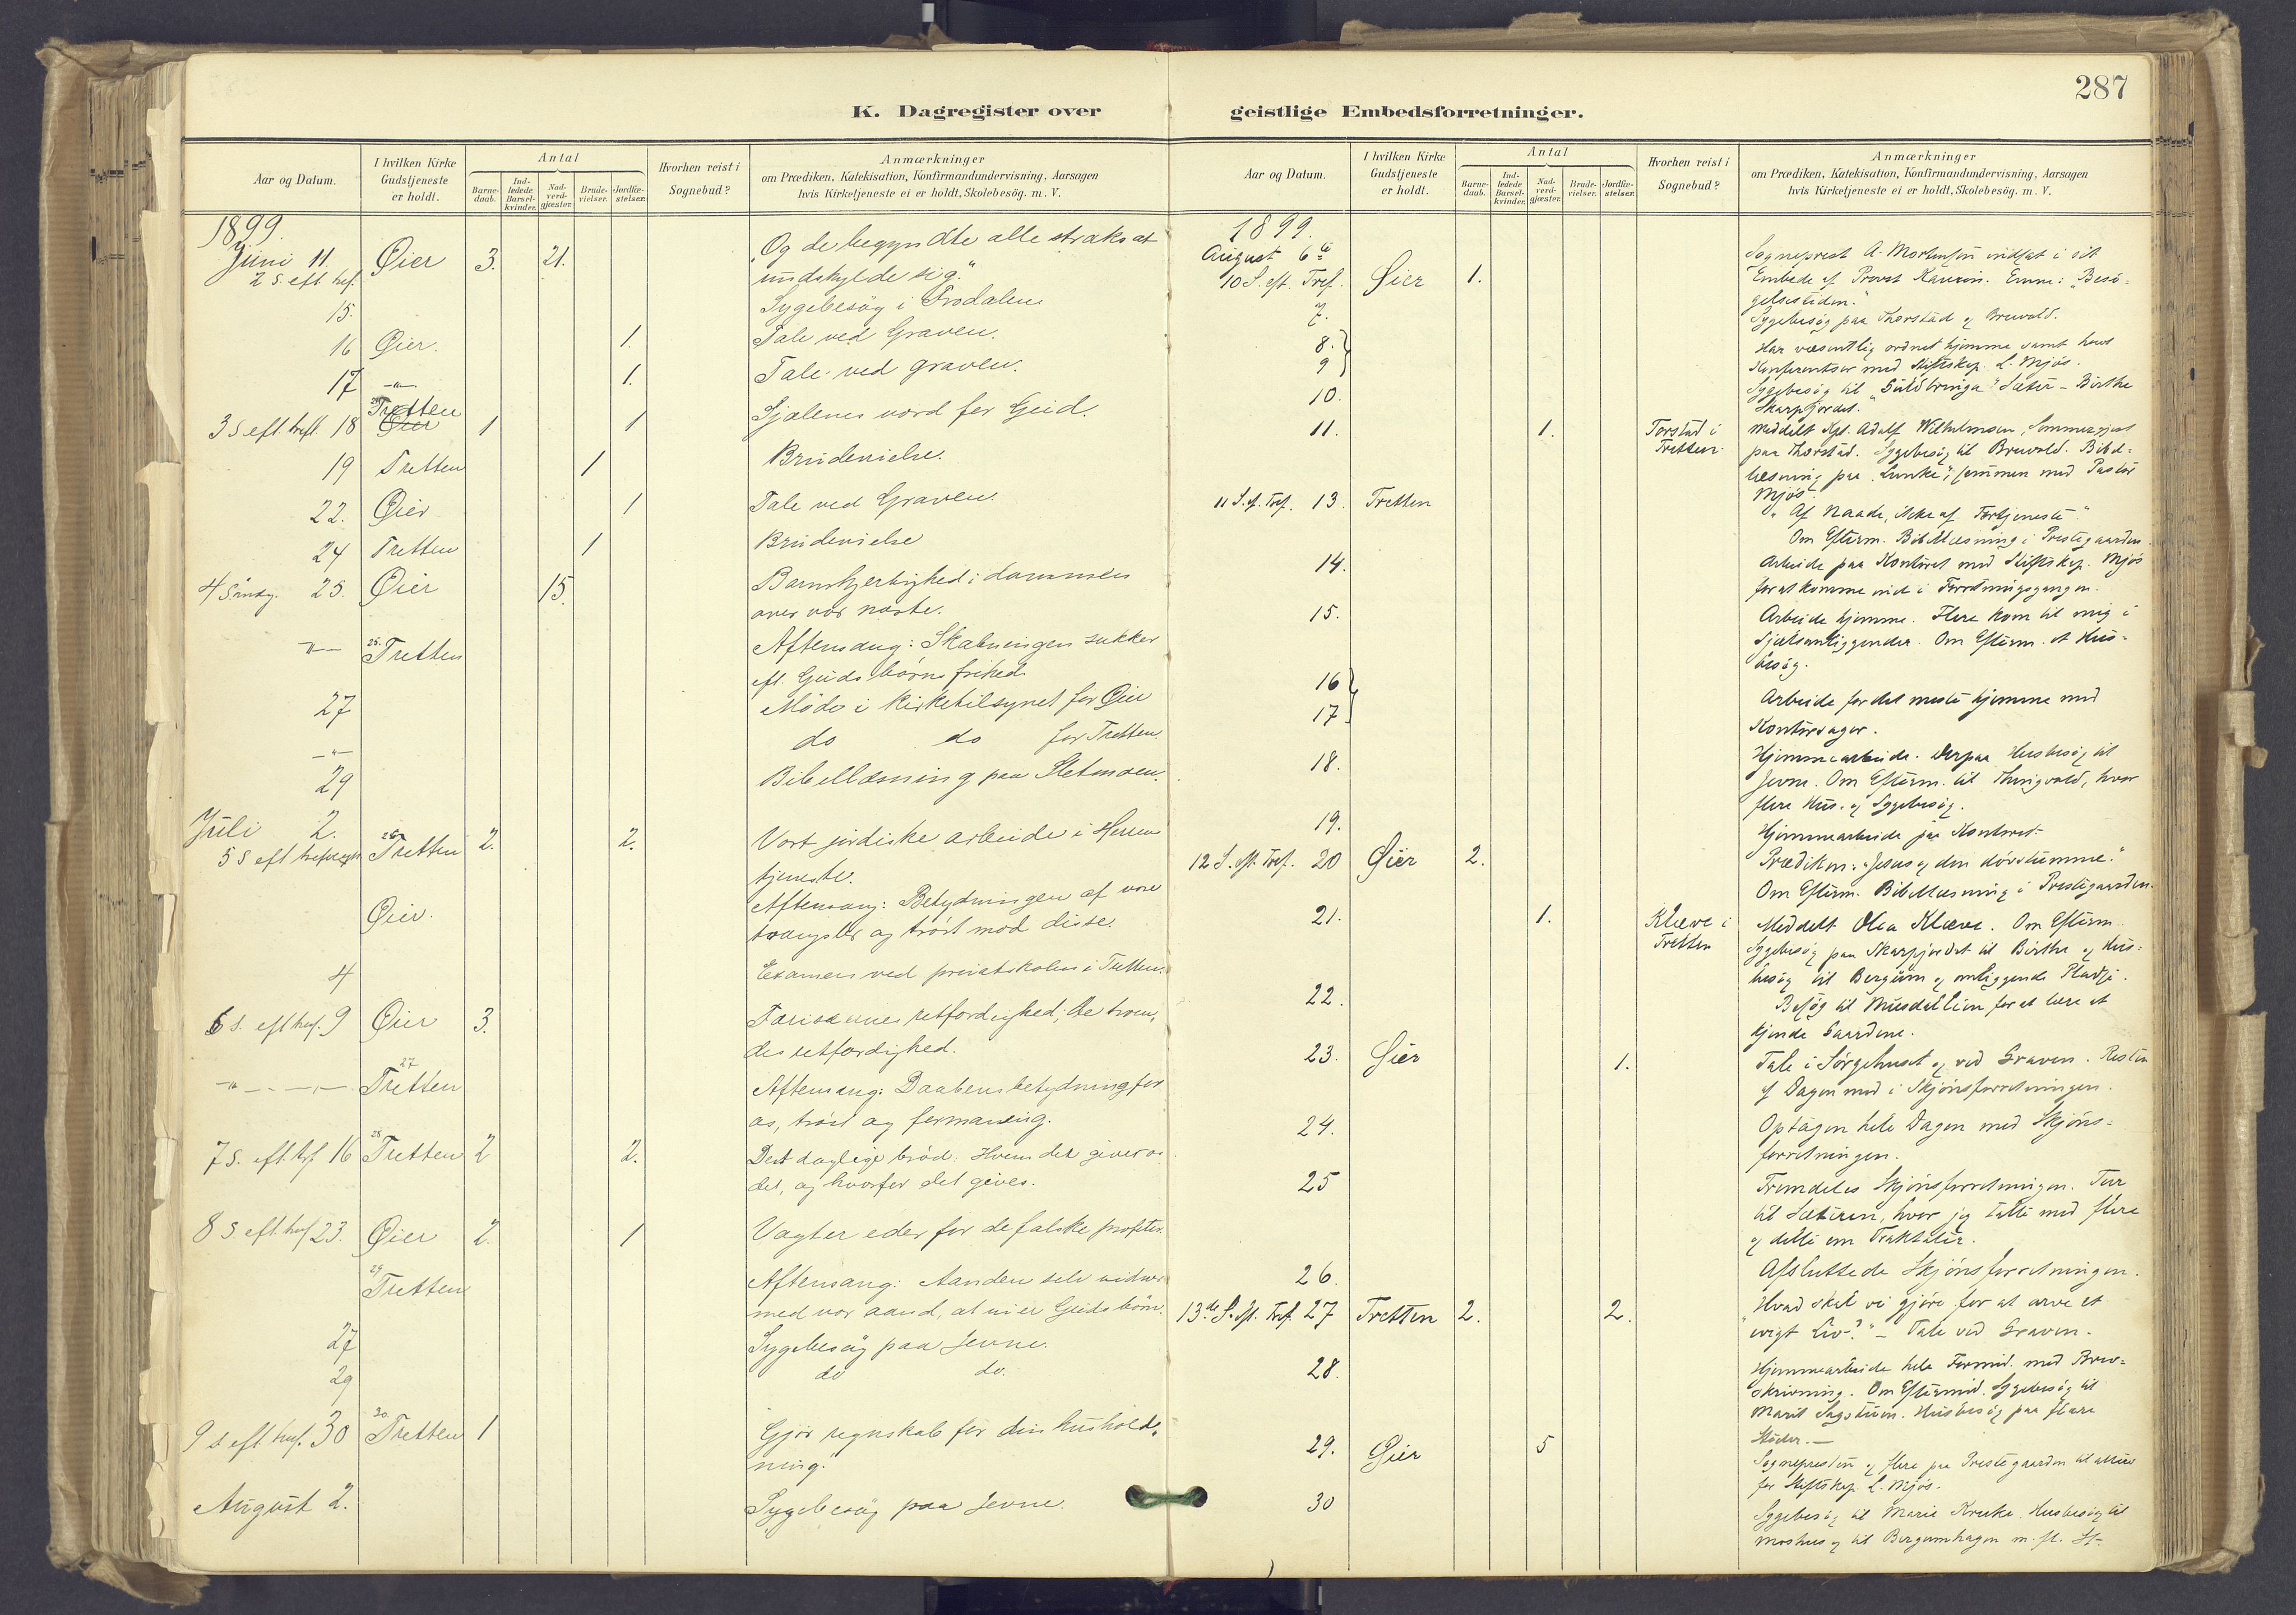 287
K. Dagregister over geistlige Embedsforretninger.
Aar og Datum.
I hvilken Kirke Gudstjeneste er holdt.
Antal
Barnedaab.
Indledede Barselkvinder.
Nadverdgjæster.
Brudevielser.
Jordfæstelser.
Hvorhen reist i Sognebud?
Anmærkninger
om Prædiken, Katekisation, Konfirmandundervisning, Aarsagen
hvis Kirketjeneste ei er holdt, Skolebesög. m. V.
1899.
Juni 11. Øier 3. 21. "Og de begyndte alle straks at
2 S. eft. tref. undskylde sig."
15. Sygebesög i
16 Øier. 1. Tale ved Graven.
17 -"- 1. Tale ved graven.
3 S eft. treft. 18 Tretten 1 1 Sjælenes værd for Gud.
19 Tretten 1 Brudevielse.
22. Øier 1 Tale ved Graven.
24 Tretten 1 Brudevielse
4 Sönd. 25. Øier 15. Barmhjertighed i dommen
over vor næste.
-"- 25. Tretten Aftensang: Skabningen sukker
eft. Guds börns frihed
27 Möde i kirketilsynet for Øier
-"- do do for Tretten.
29 Bibellæsning paa Sletmoen.
Juli 2. 26. Tretten 2. 2. Vort jordiske arbeide i Herrens
5 S eft tref. tjeneste.
Øier. Aftensang: Betydningen af vore
trængsler og tröst mod disse.
4 Examen ved privatskolen i Tretten.
6 S. eft tref. 9 Øier 3. Farisæernes retfærdighed; de troen-
des retfærdighed.
-"- 27 Tretten Aftensang: Daabens betydning for
os, tröst og formaning.
7 S. eft. tref 16 28 Tretten 2 2. Det daglige bröd. Hvem der giver os
det, og hvorfor det gives.
8 S eft. tref 23. Øier 2. 1 Vogter eder for de falske profeter.
29 Tretten Aftensang: Aanden selv vidner
med vor aand, at vi er Guds börn.
27 Sygebesög paa Jevne.
29 do do.
9 S eft tref. 30 30. Tretten 1 Gjör regnskab for din hushold-
ning.
August 2. Sygebesög paa Jevne.
Aar og Datum.
I hvilken Kirke Gudstjeneste er holdt.
Antal
Barnedaab.
Indledede Barselkvinder.
Nadverdgjæster.
Brudevielser.
Jordfæstelser.
Hvorhen reist i Sognebud?
Anmærkninger
om Prædiken, Katekisation, Konfirmandundervisning, Aarsagen
hvis Kirketjeneste ei er holdt, Skolebesög. m. V.
1899.
August 6te Sogneprest A. Mortensen indsat i sit
10 S. eft. Tref. Øier 1. Embede af Provst Kaurin. Emne: "Besö-
gelsestiden."
7. Sygebesög paa Thorstad og Bruvold.
8. Har væsentlig ordnet hjemme samt havt
9 Konferentser med Stiftskap. L. Mjös.
10. Sygebesög til Sæter - Birthe
Skarpsjordet.
11. 1. Torstad i Tretten. Meddelt Kpt. Adolf Wilhelmsen, Sommergjæst
paa Thorstad. Sygebesög til Bruvold. Bibel-
læsning paa "Lunke", sammen med Pastor
Mjös.
11 S. ef. Tref. 13. Tretten "Af Naade, ikke af Fortjeneste."
Om Efterm. Bibellæsning i Prestegaarden.
14. Arbeide paa Kontoret med Stiftskap. Mjös
for at komme ind i Forretningsgangen.
15. Arbeide hjemme. Flere kom til mig i
Sjælsanliggender. Om Efterm. et Hus-
besög.
16 Arbeide for det meste hjemme med
17 Kontorsager.
18. Hjemmearbeide. Derpaa Husbesög til
Jevne. Om Efterm. til Thingvold, hvor
flere Hus- og Sygebesög.
19. Hjemmearbeide paa Kontoret.
12 S. eft. Tref. 20 Øier 2. Prædiken: "Jesus og den dövstumme."
Om Efterm. Bibellæsning i Prestegaarden.
21. 1. Kleve i Tretten Meddelt Olea Kleve. Om Efterm.
Sygebesög paa Skarpsjordet til Birthe og Hus-
besög til Bergum og omliggende Pladse.
22. Besög til Musdallien for at lære at
kjende Gaardene.
23. Øier 1. Tale i Sörgehuset og ved Graven. Resten
af Dagen med i Skjönsforretningen.
24. Optagen hele Dagen med Skjöns-
forretningen.
25 Fremdeles Skjönsforretningen. Tur
til Sæteren, hvor jeg talte med flere
og delte om Traktater.
26. Afsluttede Skjönsforretningen.
13de S. eft. Tref. 27 Tretten 2. 2. "Hvad skal vi gjöre for at arve et
evigt Liv?" - Tale ved Graven.
28. Hjemmearbeide hele Formid. med Brev-
skrivning. Om Eftermid. Sygebesög til
Marit Sagstuen. Husbesög paa flere
Steder. -
29. Øier 5 Sognepresten og flere paa Prestegaarden til alters
for Stiftskap. L. Mjös.
30 Sygebesög til Marie Kruke. Husbesög til
Moshus og til Bergumhagen m. fl. St.